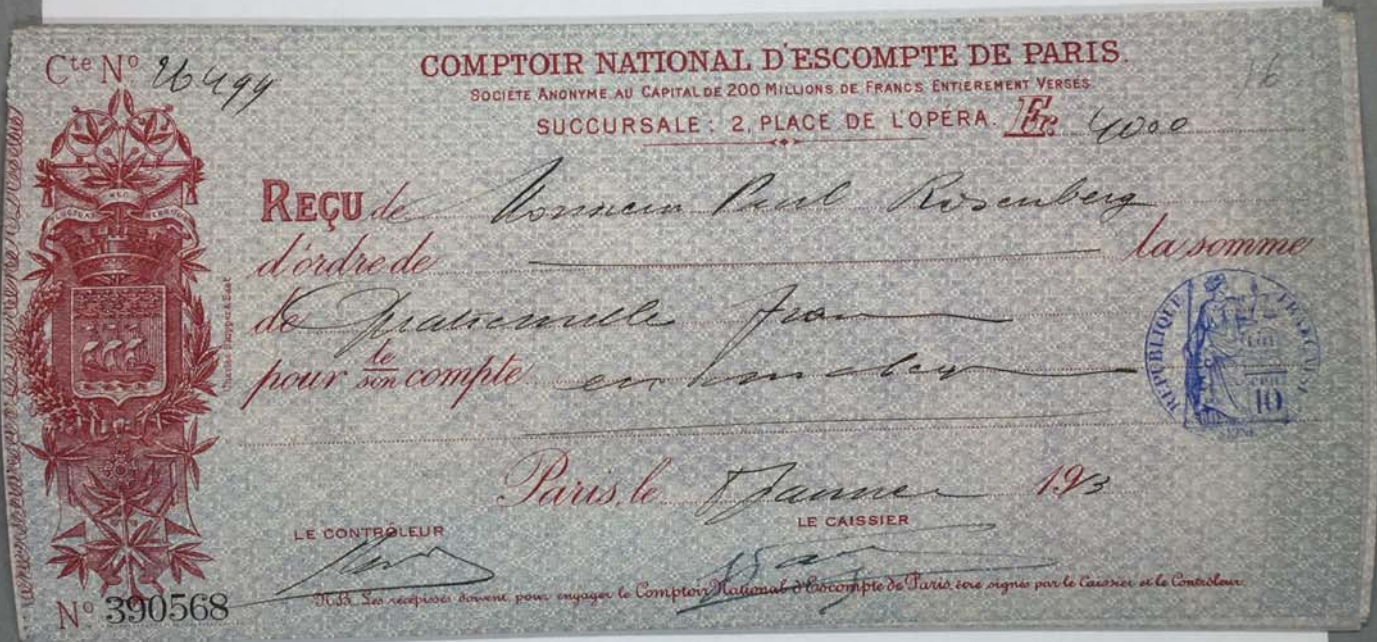 Cte No 26499
COMPTOIR NATIONAL D'ESCOMPTE DE PARIS.
16
SOCIÉTÉ ANONYME AU CAPITAL DE 200 MILLIONS DE FRANCS ENTIEREMENT VERSÉS
SUCCURSALE : 2, PLACE DE L'OPÉRA. Fr. 4000
REÇU de Monsieur Paul Rosenberg
d'ordre de la somme
de Quatremille francs
pour le son compte en
RÉPUBLIQUE FRANÇAISE
10
Paris, le Janvier 1913
LE CONTRÔLEUR
LE CAISSIER
N.B. Les récépissés doivent, pour engager le Comptoir National d'Escompte de Paris, être signés par le Caissier et le Contrôleur.
No 390568